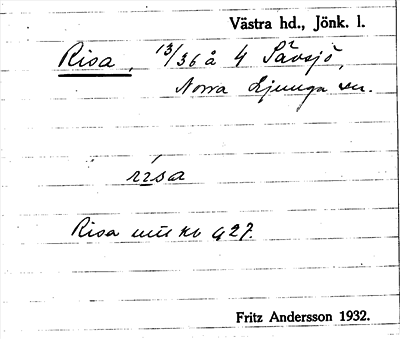 Västra hd., Jönk. l.
Risa, 13/36 å 4 Sävsjö,
Norra Ljunga sn.
risa
Risa
Fritz Andersson 1932.